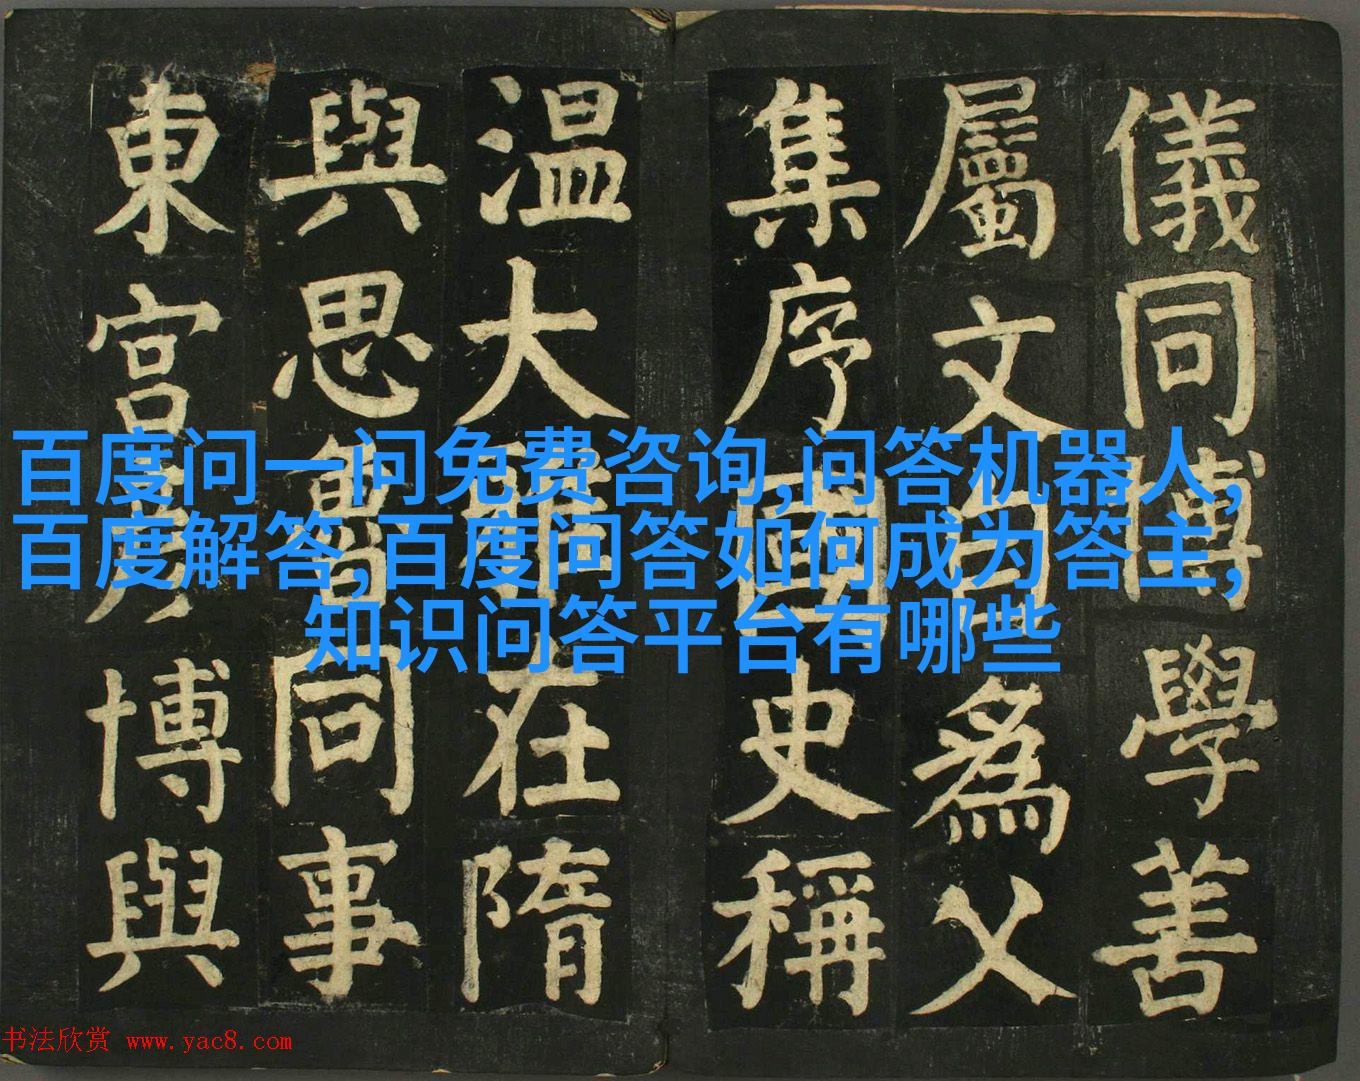 儀同博學善
屬文自爲父
集序國史稱
温大雅在隋
與思魯同事
東宮彥博與
百度问一问免费咨询,问答机器人,
百度解答,百度问答如何成为答主,
知识问答平台有哪些
书法欣赏 www.yac8.com